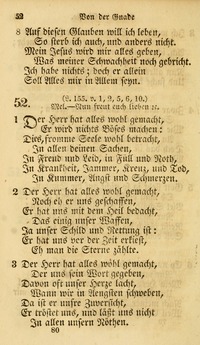 52 Von der Gnade
8 Auf diesen Glauben will ich leben,
So sterb ich auch, und anders nicht.
Mein Jesus wird mir alles geben,
Was meiner Schwachheit noch gebricht.
Ich habe nichts; doch er allein
Soll Alles mir in Allem seyn.
52. (2. 155. v. 1, 2, 5, 6, 10.)
Mel.—Nun freut euch lieben ꝛc.
1 Der Herr hat alles wohl gemacht,
Er wird nichts Böses machen:
Dies, fromme Seele wohl betracht,
In allen deinen Sachen,
In Freud und Leid, in Füll und Noth,
In Krankheit, Jammer, Kreuz, und Tod,
In Kummer, Angst und Schmerzen.
2 Der Herr hat alles wohl gemacht,
Noch eh er uns geschaffen,
Er hat uns mit dem Heil bedacht,
Das einig unser Waffen,
Ja unser Schild und Rettung ist:
Er hat uns vor der Zeit erkiest,
Eh man die Sterne zählte.
3 Der Herr hat alles wohl gemacht,
Der uns sein Wort gegeben,
Davon oft unser Herze lacht,
Wann wir in Aengsten schweben,
Da ist er unsre Zuversicht,
Er tröstet uns, und läßt uns nicht
In allen unsern Nöthen.
80